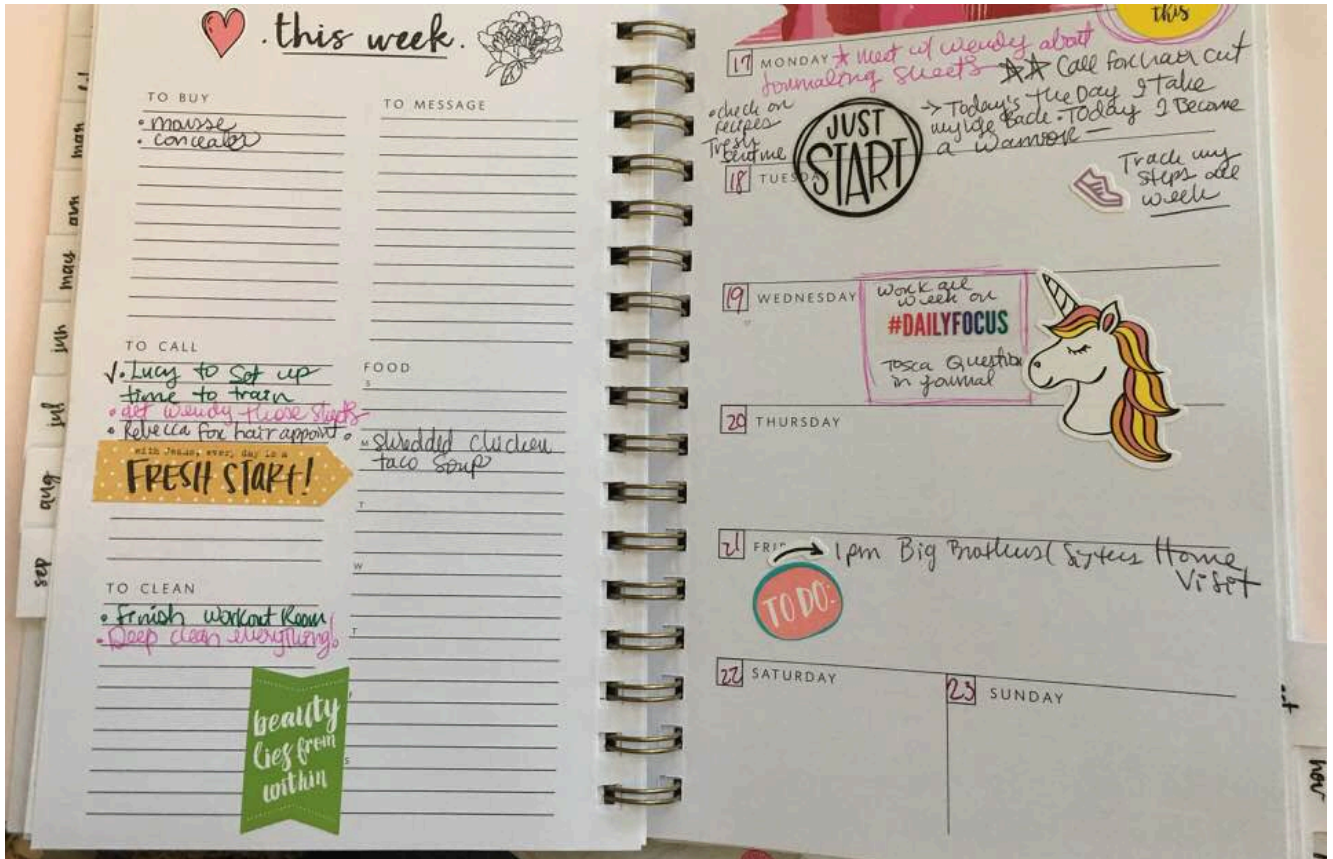 this week.
TO BUY
• mousse
• concealer
TO MESSAGE
TO CALL
✓• Lucy to Set up
time to train
• get wendy those sheets
• Rebecca for hair appoint.
with Jesus, every day is a
FRESH START!
FOOD
S
M shredded chicken
taco soup
T
W
T
F
S
TO CLEAN
• Finish Workout Room
• Deep clean everything!
beauty
lies from
within
this
17 MONDAY ★ Meet w/ Wendy about
Journaling Sheets ★★ Call for hair cut
• check on
recipes
Fresh
JUST
START
→ Today's the Day I Take
my life Back. Today I Become
a Warrior —
18 TUESDA
Track my
steps all
week
19 WEDNESDAY
Work all
week on
#DAILYFOCUS
Tosca Question
in journal
20 THURSDAY
21 FRI
→ 1pm Big Brothers/Sisters Home
Visit
TO DO:
22 SATURDAY
23 SUNDAY
mar
apr
may
jun
jul
aug
sep
nov